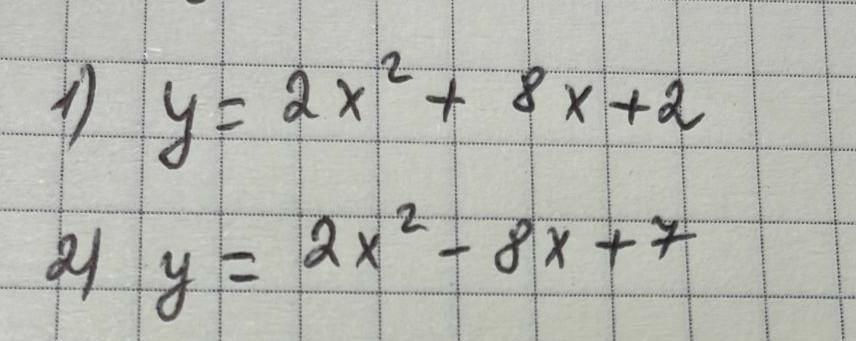 1) y = 2x² + 8x + 2
2) y = 2x² - 8x + 7